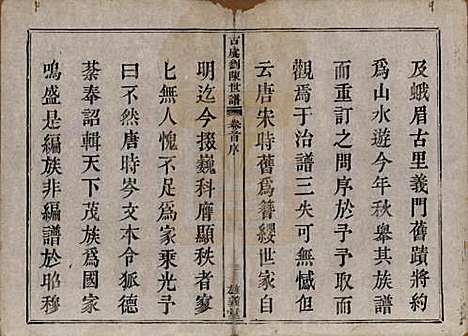 及蛾眉古里義門舊蹟將約
為山水遊今年秋舉其族譜
而重訂之問序於予予取而
觀焉于治譜三失可無憾但
云唐宋時舊為簪纓世家自
古虞劉陳世譜 卷首序
雄義堂
明迄今掇巍科膺顯秩者寥
匕無人愧不足為家乘光予
曰不然唐時岑文本令狐德
棻奉詔輯天下茂族為國家
鳴盛是編族非編譜於昭穆